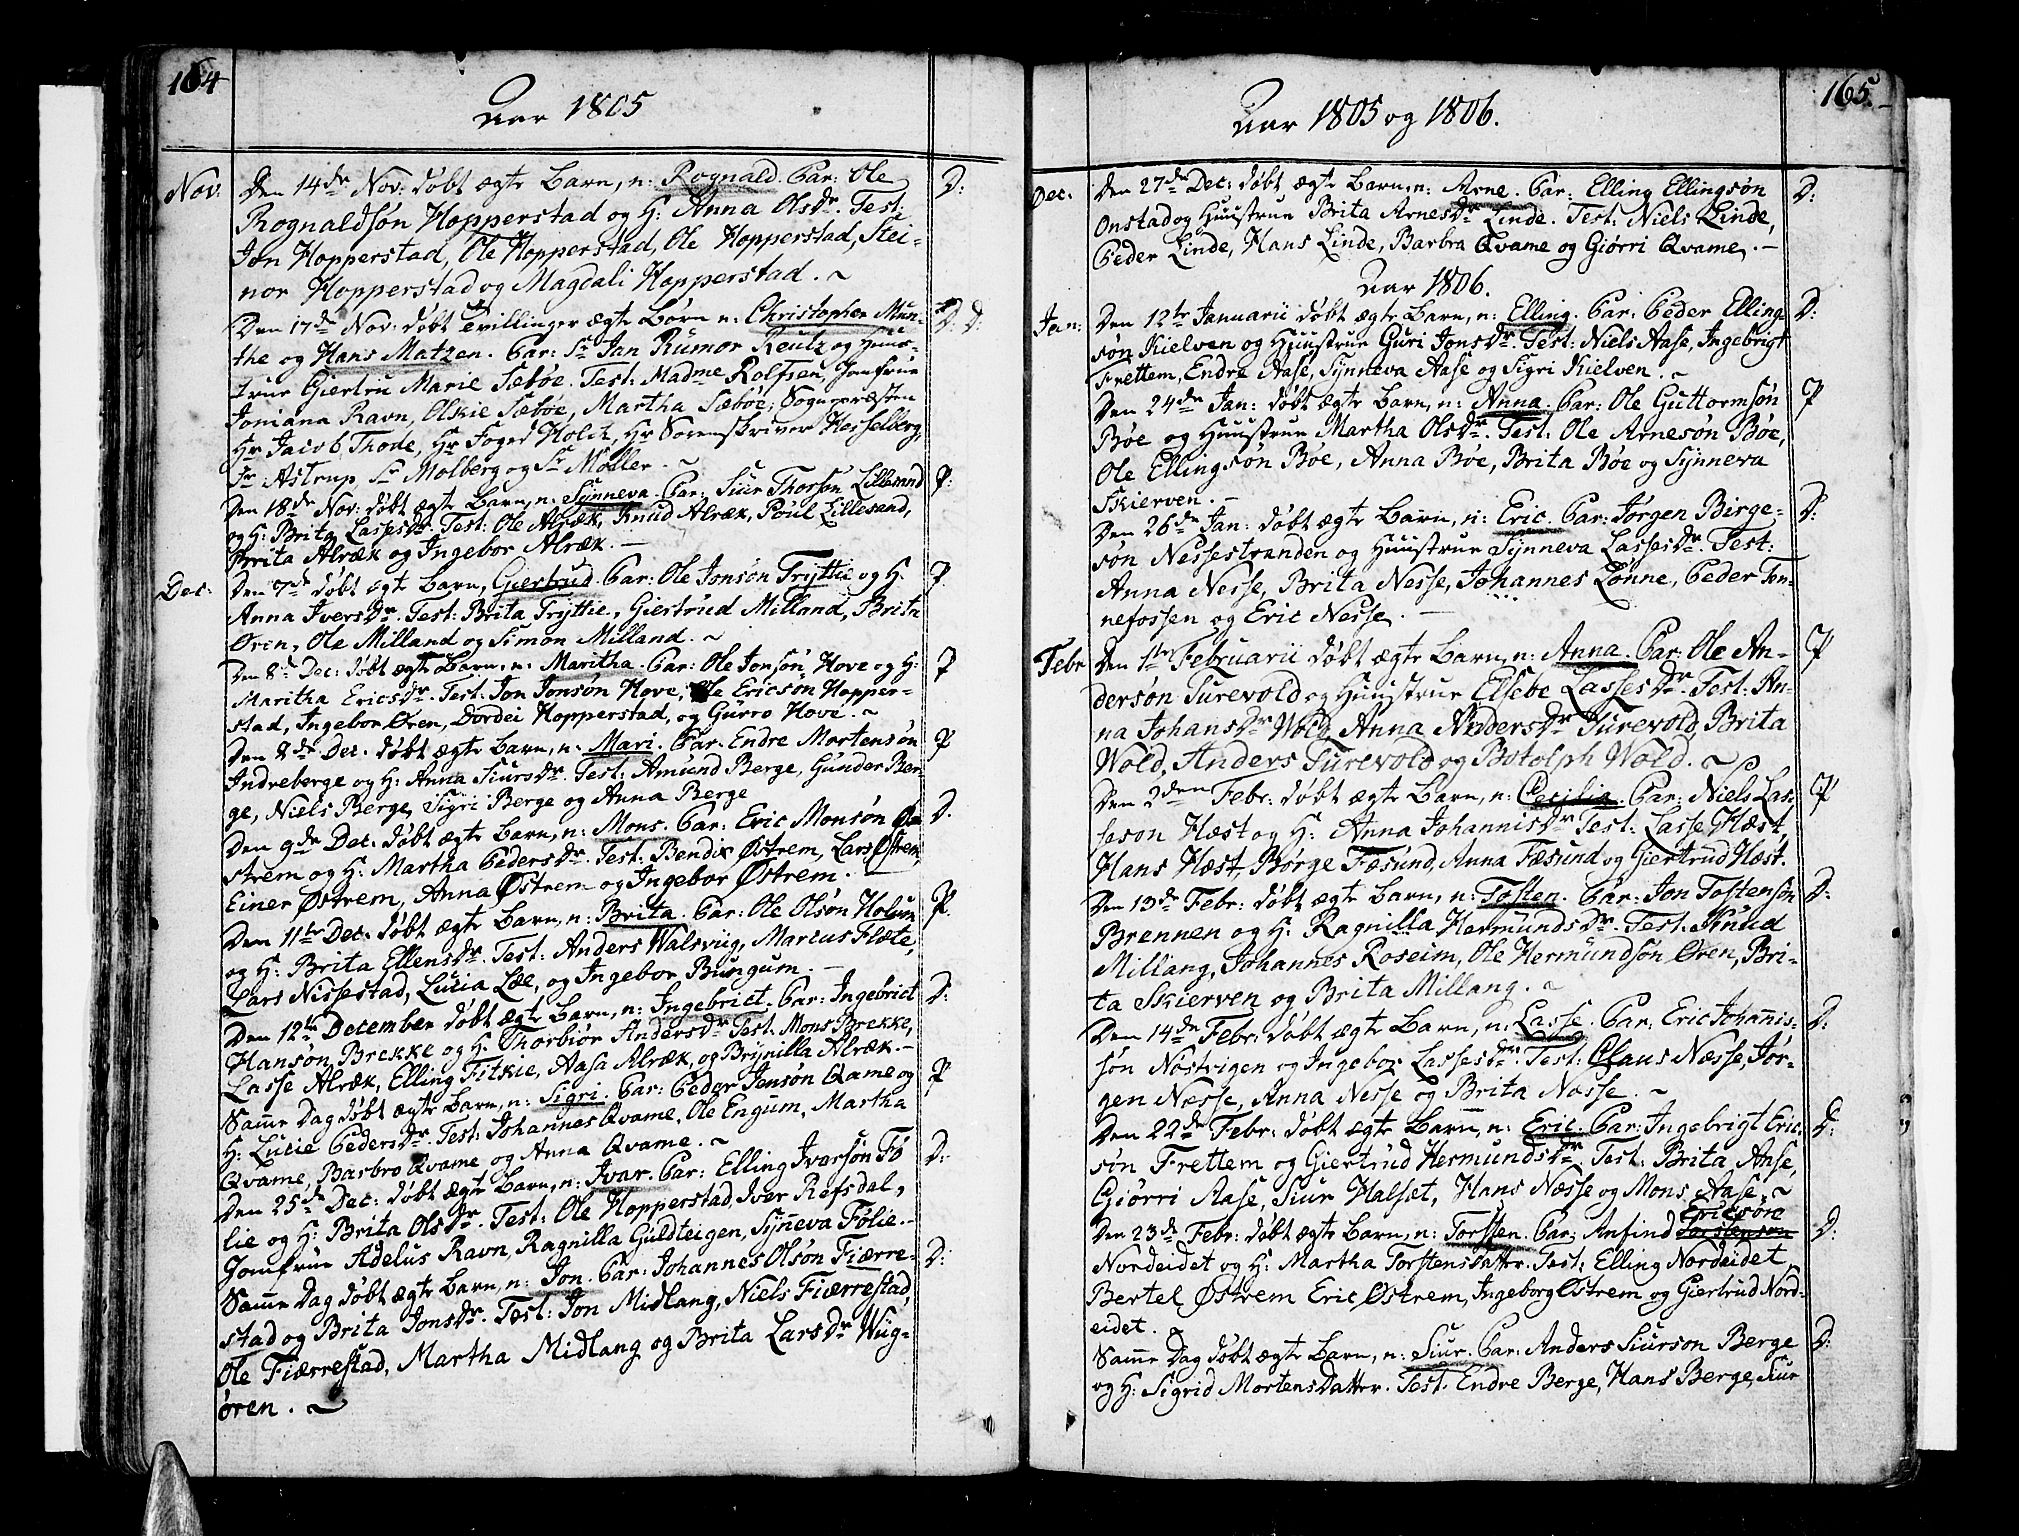 164
Aar 1805
Nov. Den 14de Nov: døbt ægte Barn, n: Rognald. Par: Ole D:
Rognaldsøn Hopperstad og H: Anna Olsdr. Test:
Jon Hopperstad, Ole Hopperstad, Ole Hopperstad, Stei-
nor Hopperstad og Magdali Hopperstad. ~
Den 17de Nov: døbt Tvillinger ægte Børn n: Christopher Mun- D: D:
the og Hans Matzen. Par: Sr Jan Rumor Reutz og Huus-
true Giertru Marie Sæbøe. Test: Madme Rolfsen, Jomfrue
Joniana Ravn, Olskie Sæbøe, Martha Sæbøe, Sognepræsten
Hr Jacob Thode, Hr Foged Holck, Hr Sorenskriver Hesselberg,
Sr Astrup, Sr Molberg og Sr Møller. ~
Den 18de Nov: døbt ægte Barn, n: Synneva. Par: Siur Thorsøn Lillesand P:
og H: Brita Lassesdr. Test: Ole Alræk, Knud Alræk, Poul Lillesand,
Brita Alræk og Ingebor Alræk. —
Dec: Den 7de døbt ægte Barn, Giertrud. Par: Ole Jonsøn Tryttie og H: P.
Anna Iversdr. Test: Brita Tryttie, Giertrud Milland, Brita
Øren, Ole Milland og Simon Milland. ~
Den 8de Dec: døbt ægte Barn, n: Maritha. Par: Ole Jonsøn Hove og H: P
Maritha Ericsdr. Test: Jon Jonsøn Hove, Ole Ericsøn Hopper-
stad, Ingebor Øren, Dordei Hopperstad, og Gurro Hove. ~
Den 8de Dec. døbt ægte Barn, n: Mari. Par. Endre Mortensøn P
Indreberge og H: Anna Siursdr. Test: Amund Berge, Gunder Ber-
ge, Niels Berge, Sigri Berge og Anna Berge
Den 9de Dec: døbt ægte Barn, n: Mons. Par: Eric Monsøn Øe D.
strem og H: Martha Pedersdr. Test: Bendix Østrem, Lars Østrem,
Einer Østrem, Anna Østrem og Ingebor Østrem.
Den 11te Dec: døbt ægte Barn, n: Brita. Par: Ole Olsøn Holum P.
og H: Brita Ellensdr. Test: Anders Walsviig, Marcus Flæte,
Lars Nissestad, Lucia Lee, og Ingebor Bungum. —
Den 12te December døbt ægte Barn, n: Ingebrict. Par: Ingebrict D:
Hansøn Brekke og H: Thorbiør Andersdr. Test: Mons Brekke,
Lasse Alræk, Elling Fitkie, Aasa Alræk, og Brynilla Alræk. —
Samme Dag døbt ægte Barn, n: Sigri. Par: Peder Jensøn Qvame og P
H: Lucie Pedersdr. Test: Johannes Qvame, Ole Engum, Martha
Qvame, Barbro Qvame og Anna Qvame. ~
Den 25de Dec: døbt ægte Barn, n: Ivar. Par: Elling Ivarsøn Fø D:
lie og H: Brita Olsdr. Test: Ole Hopperstad, Iver Refsdal,
Jomfrue Adelus Ravn, Ragnilla Guldteigen, Synneva Følie. —
Samme Dag døbt ægte Barn, n: Jon. Par: Johannes Olsøn Fiærre- D:
stad og Brita Jonsdr. Test: Jon Midlang, Niels Fiærrestad,
Ole Fiærrestad, Martha Midlang og Brita Larsdr Wiig-
øren. ~
165
Aar 1805 og 1806.
Dec. Den 27de Dec: døbt ægte Barn, n: Arne. Par: Elling Ellingsøn D:
Onstad og Huustrue Brita Arnesdr Linde. Test: Niels Linde,
Peder Linde, Hans Linde, Barbra Qvame og Giørri Qvame. —
Aar 1806.
Jan: Den 12te Januarii døbt ægte Barn, n: Elling. Par: Peder Elling D:
søn Kielven og Huustrue Guri Jonsdr. Test: Niels Aase, Ingebrigt
Frettem, Endre Aase, Synneva Aase og Sigri Kielven. ~
Den 24de Jan: døbt ægte Barn, n: Anna. Par: Ole Guttormsøn P
Bøe og Huustrue Martha Olsdr. Test: Ole Arnesøn Bøe,
Ole Ellingsøn Bøe, Anna Bøe, Brita Bøe og Synneva
Skierven. —
Den 26de Jan: døbt ægte Barn, n: Eric. Par: Jørgen Birge- D:
søn Nessestranden og Huustrue Synneva Lassesdr. Test:
Anna Nesse, Brita Nesse, Johannes Lønne, Peder Fen-
nefossen og Eric Nesse. —
Febr Den 1ste Februarii døbt ægte Barn, n: Anna. Par: Ole An- P
dersøn Turevold og Huustrue Elsebe Lassesdr. Test: An-
na Johansdr Wold, Anna Andersdr Turevold, Brita
Wold, Anders Turevold og Botolph Wold. ~
Den 2den Febr: døbt ægte Barn, n: Cecilia. Par: Niels Las- P
seson Hæst og H: Anna Johannisdr Test: Lasse Hæst,
Hans Hæst, Børge Fæsund, Anna Fæsund og Giertrud Hæst.
Den 13de Febr: døbt ægte Barn, n: Tosten. Par: Jon Tostensøn D:
Brennen og H: Ragnilla Hermundsdr. Test: Knud
Millang, Johannes Roseim, Ole Hermundsøn Øren, Bri-
ta Skierven og Brita Millang. ~
Den 14de Febr: døbt ægte Barn, n: Lasse. Par: Eric Johannis- D:
søn Nostvigen og Ingebor Lassesdr. Test: Claus Næsse, Jør-
gen Næsse, Anna Nesse og Brita Næsse. ~
Den 22de Febr: døbt ægte Barn, n: Eric. Par: Ingebrigt Eric- D:
søn Frettem og Giertrud Hermundsdr. Test: Brita Aase,
Giørri Aase, Siur Halset, Hans Næsse og Mons Aase. ~
Ericsøn
Den 23de Febr: døbt ægte Barn, n: Torsten. Par: Anfind Torstensøn D:
Nordeidet og H: Martha Torstensdatter. Test: Elling Nordeidet,
Bertel Østrem Eric Østrem, Ingeborg Østrem og Giertrud Nord-
eidet. ~
Samme Dag døbt ægte Barn, n: Siur. Par: Anders Siurson Berge D:
og H: Sigrid Mortensdatter. Test. Endre Berge, Hans Berge, Siur